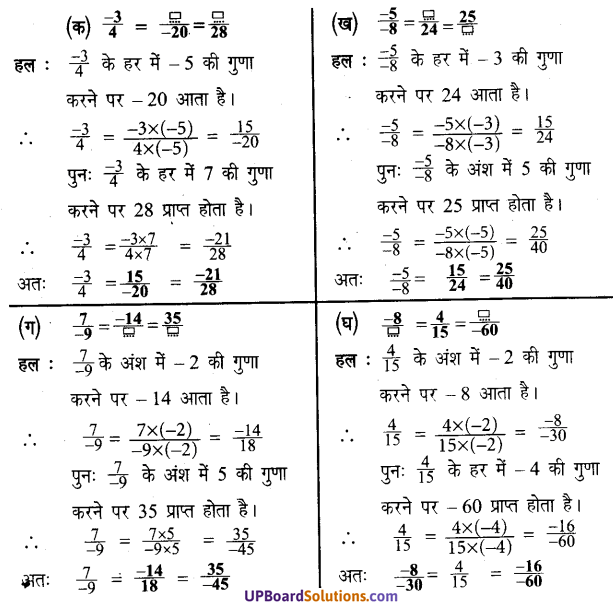 (क) -3/4 = □/-20 = □/28
हल : -3/4 के हर में – 5 की गुणा
करने पर – 20 आता है।
∴ -3/4 = -3×(-5)/4×(-5) = 15/-20
पुनः -3/4 के हर में 7 की गुणा
करने पर 28 प्राप्त होता है।
∴ -3/4 = -3×7/4×7 = -21/28
अतः -3/4 = 15/-20 = -21/28
(ख) -5/-8 = □/24 = 25/□
हल : -5/-8 के हर में – 3 की गुणा
करने पर 24 आता है।
∴ -5/-8 = -5×(-3)/-8×(-3) = 15/24
पुनः -5/-8 के अंश में 5 की गुणा
करने पर 25 प्राप्त होता है।
∴ -5/-8 = -5×(-5)/-8×(-5) = 25/40
अतः -5/-8 = 15/24 = 25/40
(ग) 7/-9 = -14/□ = 35/□
हल : 7/-9 के अंश में – 2 की गुणा
करने पर – 14 आता है।
∴ 7/-9 = 7×(-2)/-9×(-2) = -14/18
पुनः 7/-9 के अंश में 5 की गुणा
करने पर 35 प्राप्त होता है।
∴ 7/-9 = 7×5/-9×5 = 35/-45
अतः 7/-9 = -14/18 = 35/-45
(घ) -8/□ = 4/15 = □/-60
हल : 4/15 के अंश में – 2 की गुणा
करने पर – 8 आता है।
∴ 4/15 = 4×(-2)/15×(-2) = -8/-30
पुनः 4/15 के हर में – 4 की गुणा
करने पर – 60 प्राप्त होता है।
∴ 4/15 = 4×(-4)/15×(-4) = -16/-60
अतः -8/-30 = 4/15 = -16/-60
UPBoardSolutions.com